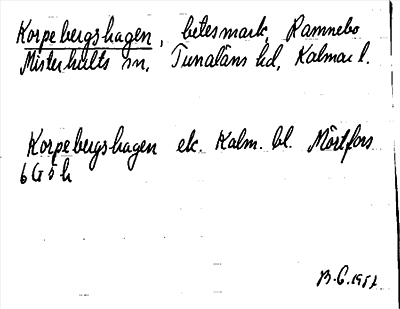 Korpebergshagen, betesmark, Ramnebo
Misterhults sn, Tunaläns hd, Kalmar l.
Korpebergshagen ek. Kalm. bl. Mörtfors
6G öh
B.G.